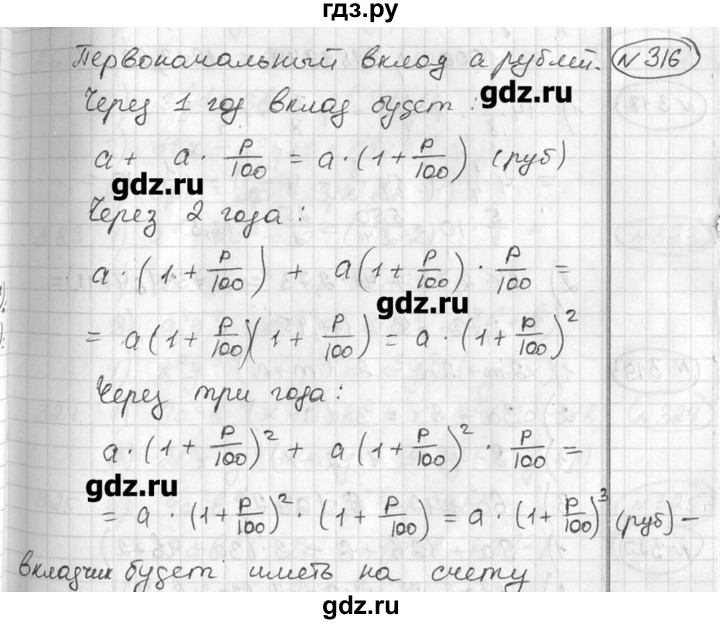 гдз.ру
Первоначальный вклад a рублей. №316
Через 1 год вклад будет :
gdz.ru
a + a · p/100 = a · (1 + p/100) (руб)
gdz.ru
Через 2 года :
a · (1 + p/100) + a(1 + p/100) · p/100 =
gdz.ru
= a(1 + p/100)(1 + p/100) = a · (1 + p/100)²
Через три года :
a · (1 + p/100)² + a(1 + p/100)² · p/100 =
gdz.ru
= a · (1 + p/100)² · (1 + p/100) = a · (1 + p/100)³ (руб) –
вкладчик будет иметь на счету
gdz.ru